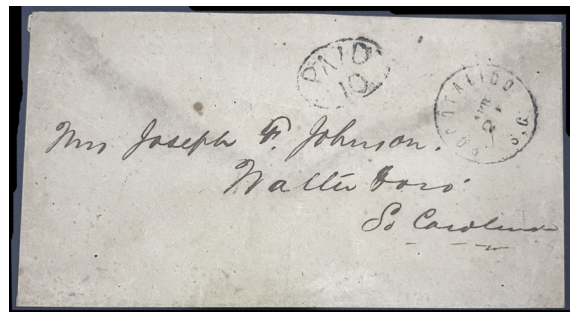 PAID
10
POCOTALIGO S.C.
APR
21
Mrs Joseph F. Johnson.
Walterboro'
So Carolina